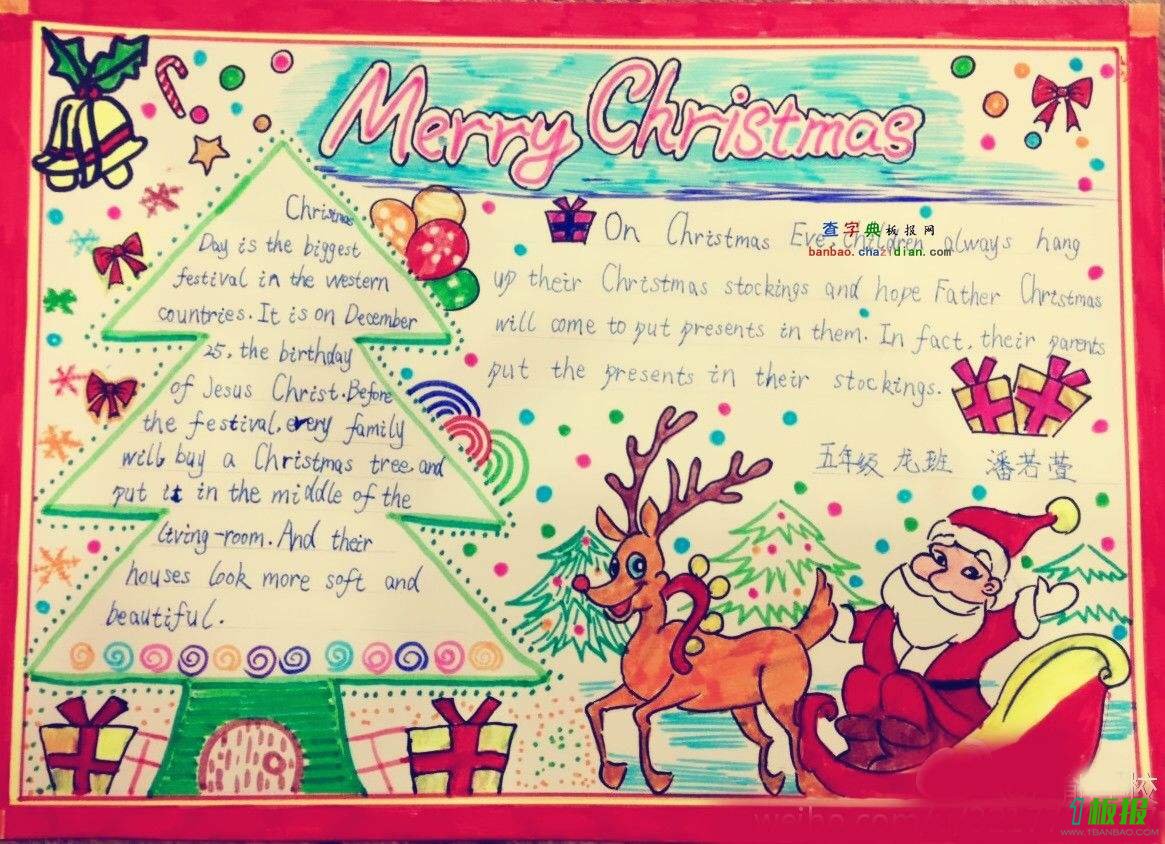 Merry Christmas
Christmas
Day is the biggest
festival in the western
countries. It is on December
25, the birthday
of Jesus Christ. Before
the festival, every family
will buy a Christmas tree and
put it in the middle of the
living-room. And their
houses look more soft and
beautiful.
On Christmas Eve, children always hang
up their Christmas stockings and hope Father Christmas
will come to put presents in them. In fact, their parents
put the presents in their stockings.
查字典板报网
banbao.chazidian.com
五年级 龙班 潘若萱
校
1板报
WWW.1BANBAO.COM